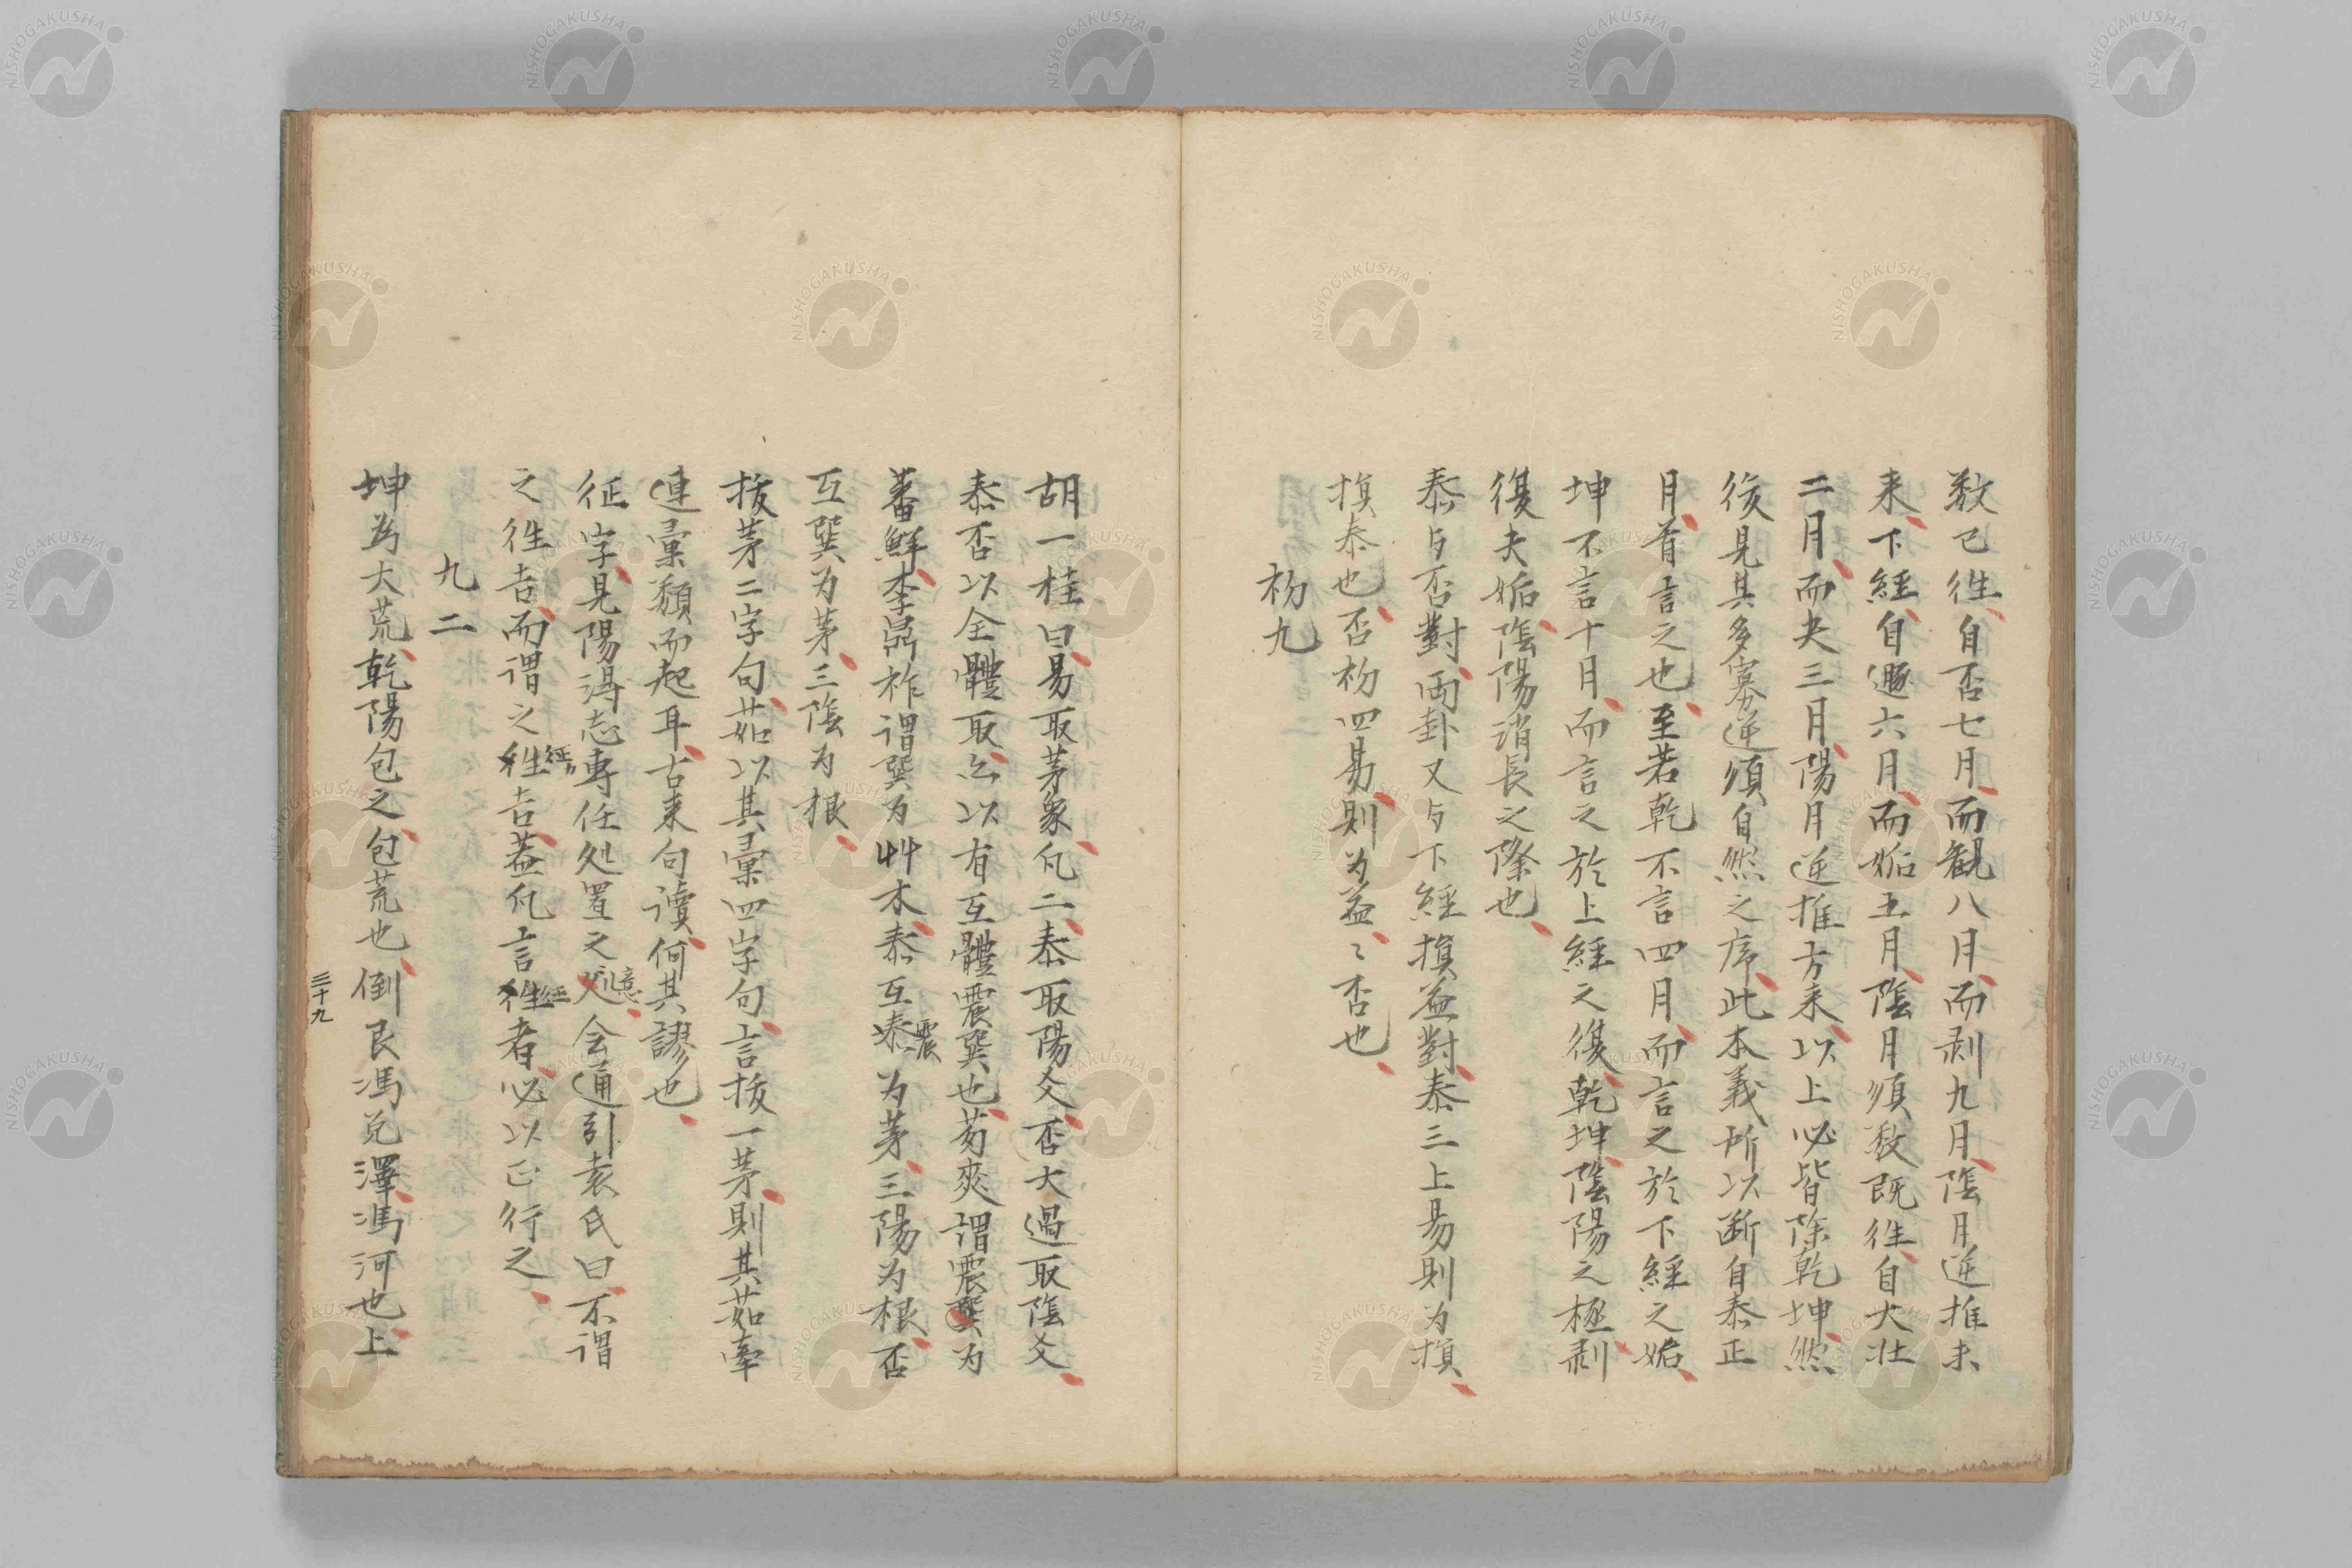 数已徃自否七月而観八月而剥九月陰月逆推未
来下經自遯六月而姤五月陰月須数既徃自大壮
二月而夬三月陽月逆推方来以上必皆除乾坤然
後見其多寡逆須自然之序此本義所以断自泰正
月首言之也至若乾不言四月而言之於下經之姤
坤不言十月而言之於上經之復乾坤陰陽之極剥
復夬姤陰陽消長之際也
泰与否對両卦又与下經損益對泰三上易則为損
損泰也否初四易則为益〻否也
初九
胡一桂曰易取茅象凡二泰取陽爻否大過取陰爻
泰否以全體取亦以有互體震巽也茘爽謂震巽为
蕃鮮李鼎祚謂巽为艸木泰互泰震为茅三陽为根否
互巽为茅三陰为根
拔茅二字句茹以其彙四字句言拔一茅則其茹牽
連彙類而起耳古来句讀何其謬也
征字見陽得志専任処置之意会通引袁氏曰不謂
之徃吉而謂之徃征吉蓋凡言徃征者必以正行之
九二
坤為大荒乾陽包之包荒也倒艮馮兌澤馮河也上
三十九
NISHOGAKUSHA